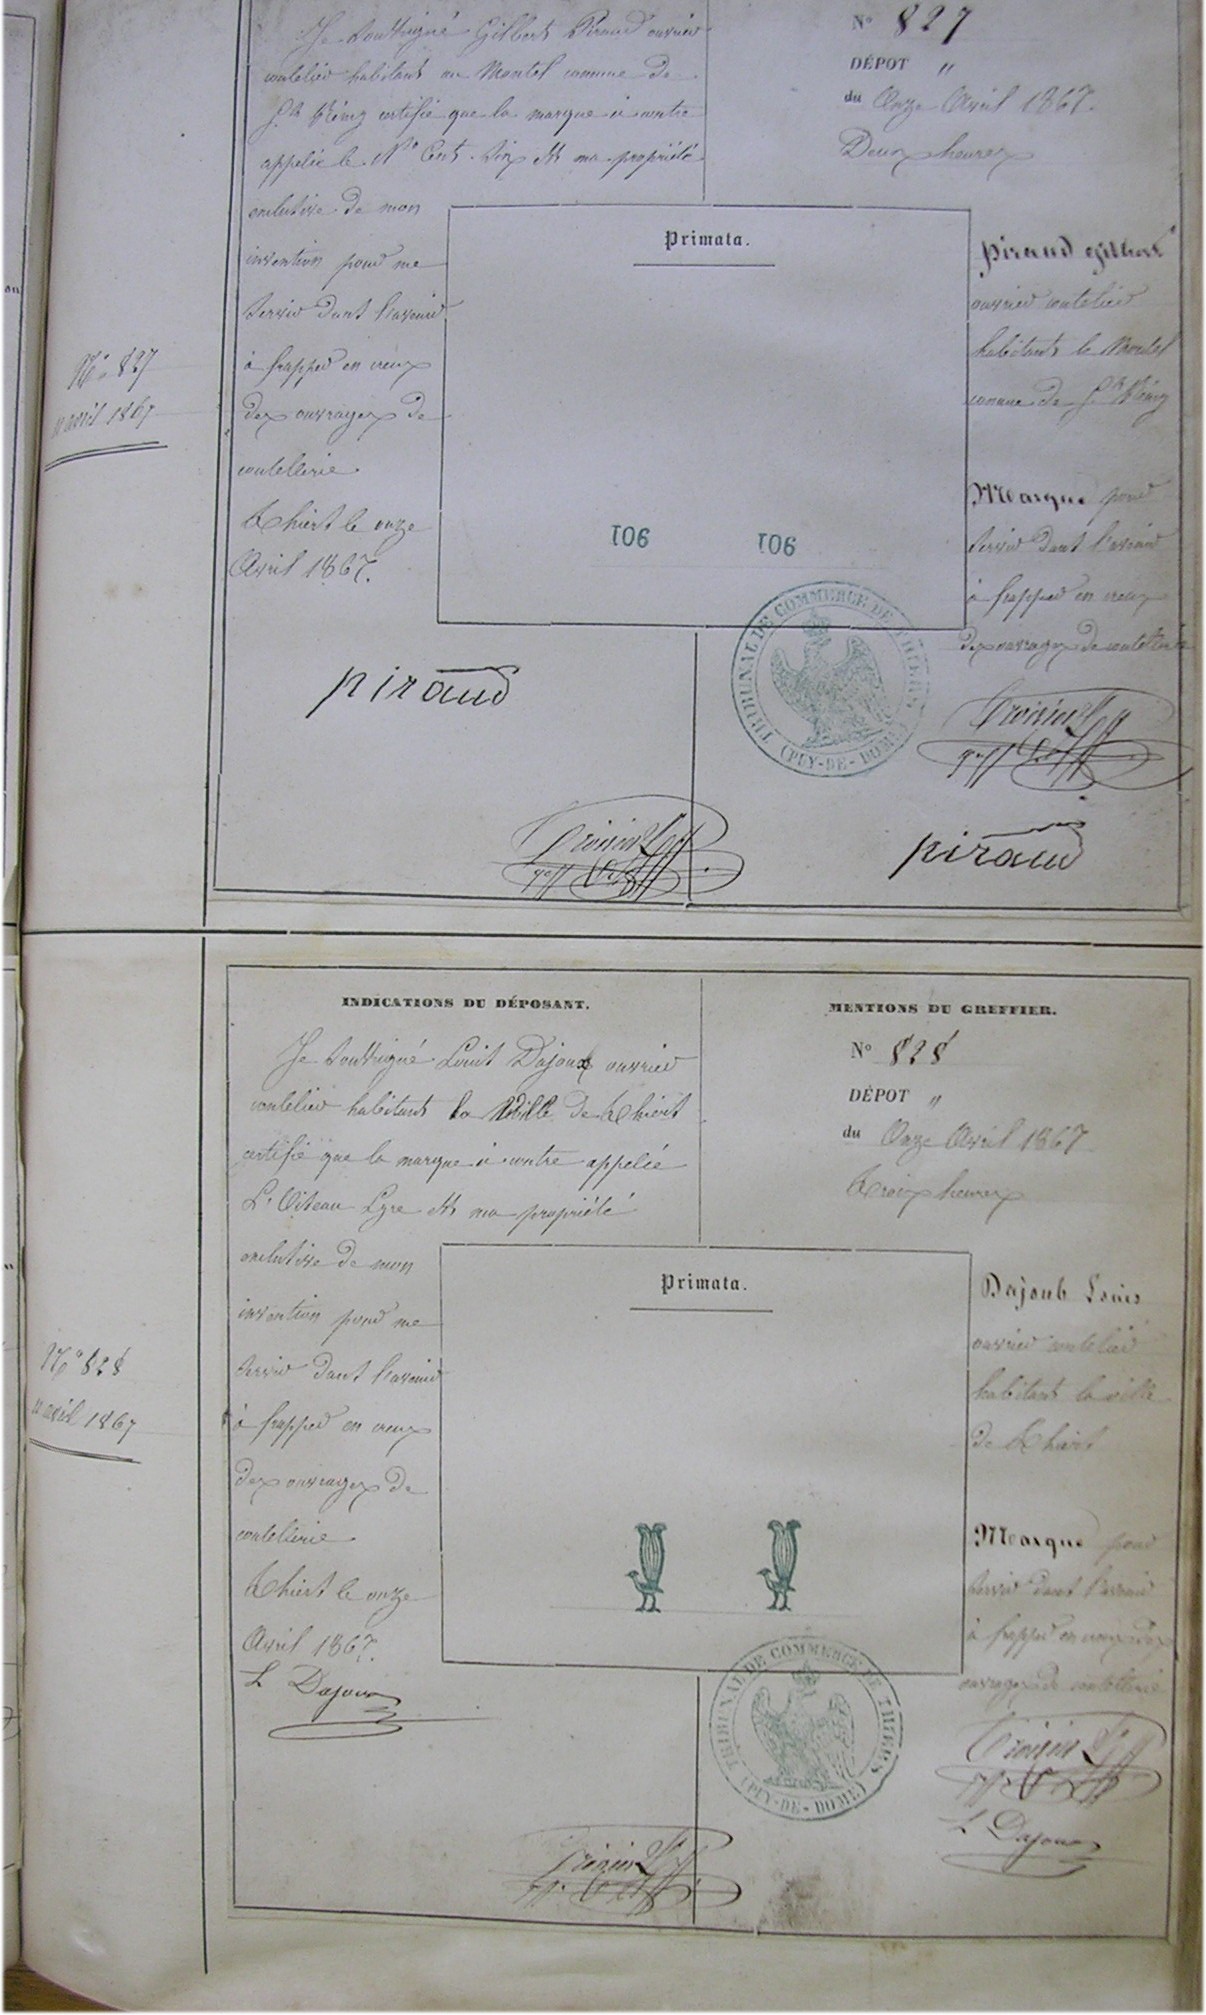 Je soussigné Gilbert Piraud ouvrier
coutelier habitant au Montel commune de
St Rémy certifie que la marque ci contre
appelée le No Cent-six est ma propriété
exclusive de mon
invention pour me
servir dans l'avenir
à frapper en creux
des ouvrages de
coutellerie
Thiers le onze
Avril 1867.
piraud
No 827
DÉPOT "
du Onze Avril 1867.
Deux heures
Primata.
106 106
Piraud Gilbert
ouvrier coutelier
habitant le Montel
comune de St Rémy
Marque pour
servir dans l'avenir
à frapper en creux
des ouvrages de coutellerie
TRIBUNAL DE COMMERCE DE THIERS
(PUY-DE-DOME)
piraud
No 827
11 avril 1867
INDICATIONS DU DÉPOSANT.
Je soussigné Louis Dajoux ouvrier
coutelier habitant la Ville de Thiers
certifie que la marque ci contre appelée
L'Oiseau Lyre est ma propriété
exclusive de mon
invention pour me
servir dans l'avenir
à frapper en creux
des ouvrages de
coutellerie
Thiers le onze
Avril 1867.
L Dajoux
MENTIONS DU GREFFIER.
No 828
DÉPOT "
du Onze Avril 1867
Trois heures
Primata.
Dajoub Louis
ouvrier coutelier
habitant la ville
de Thiers
Marque pour
servir dans l'avenir
à frapper en creux des
ouvrages de coutellerie
TRIBUNAL DE COMMERCE DE THIERS
(PUY-DE-DOME)
L Dajoux
No 828
11 avril 1867